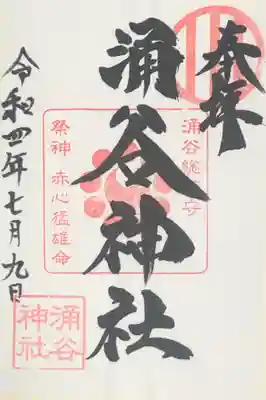 奉拝
涌谷総鎮守
涌谷神社
祭神 赤心猛雄命
令和四年七月九日
涌谷
神社